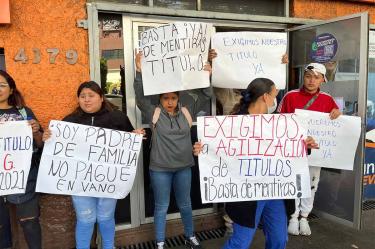 4379
BASTA ¡YA!
DE MENTIRAS
TÍTULO
EXIGIMOS NUESTRO
TITULO
YA
TITULO
G.
2021
SOY PADRE DE
FAMILIA
NO PAGUE
EN VANO
EXIGIMOS LA
AGILIZACIÓN
de TITULOS
¡Basta de mentiras!
TITULO
YA